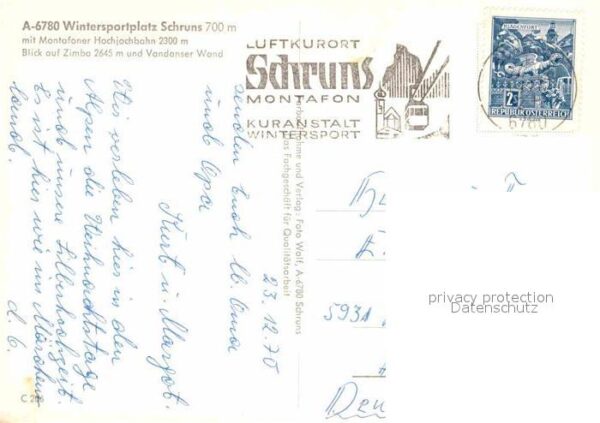 A-6780 Wintersportplatz Schruns 700 m
mit Montafoner Hochjochbahn 2300 m
Blick auf Zimba 2645 m und Vandanser Wand
LUFTKURORT
Schruns
MONTAFON
KURANSTALT
WINTERSPORT
KLAGENFURT
2S
REPUBLIK ÖSTERREICH
6780
23.12.70
senden Euch lb. Oma
und Opa
Kurt u. Margot.
Wir verleben hier in den
Alpen die Weihnachtstage
und unsere Silberhochzeit.
Es ist hier wie im Märchen
land.
und Verlag: Foto Wolf, A-6780 Schruns
das Fachgeschäft für Qualitätsarbeit
593
privacy protection
Datenschutz
C 268